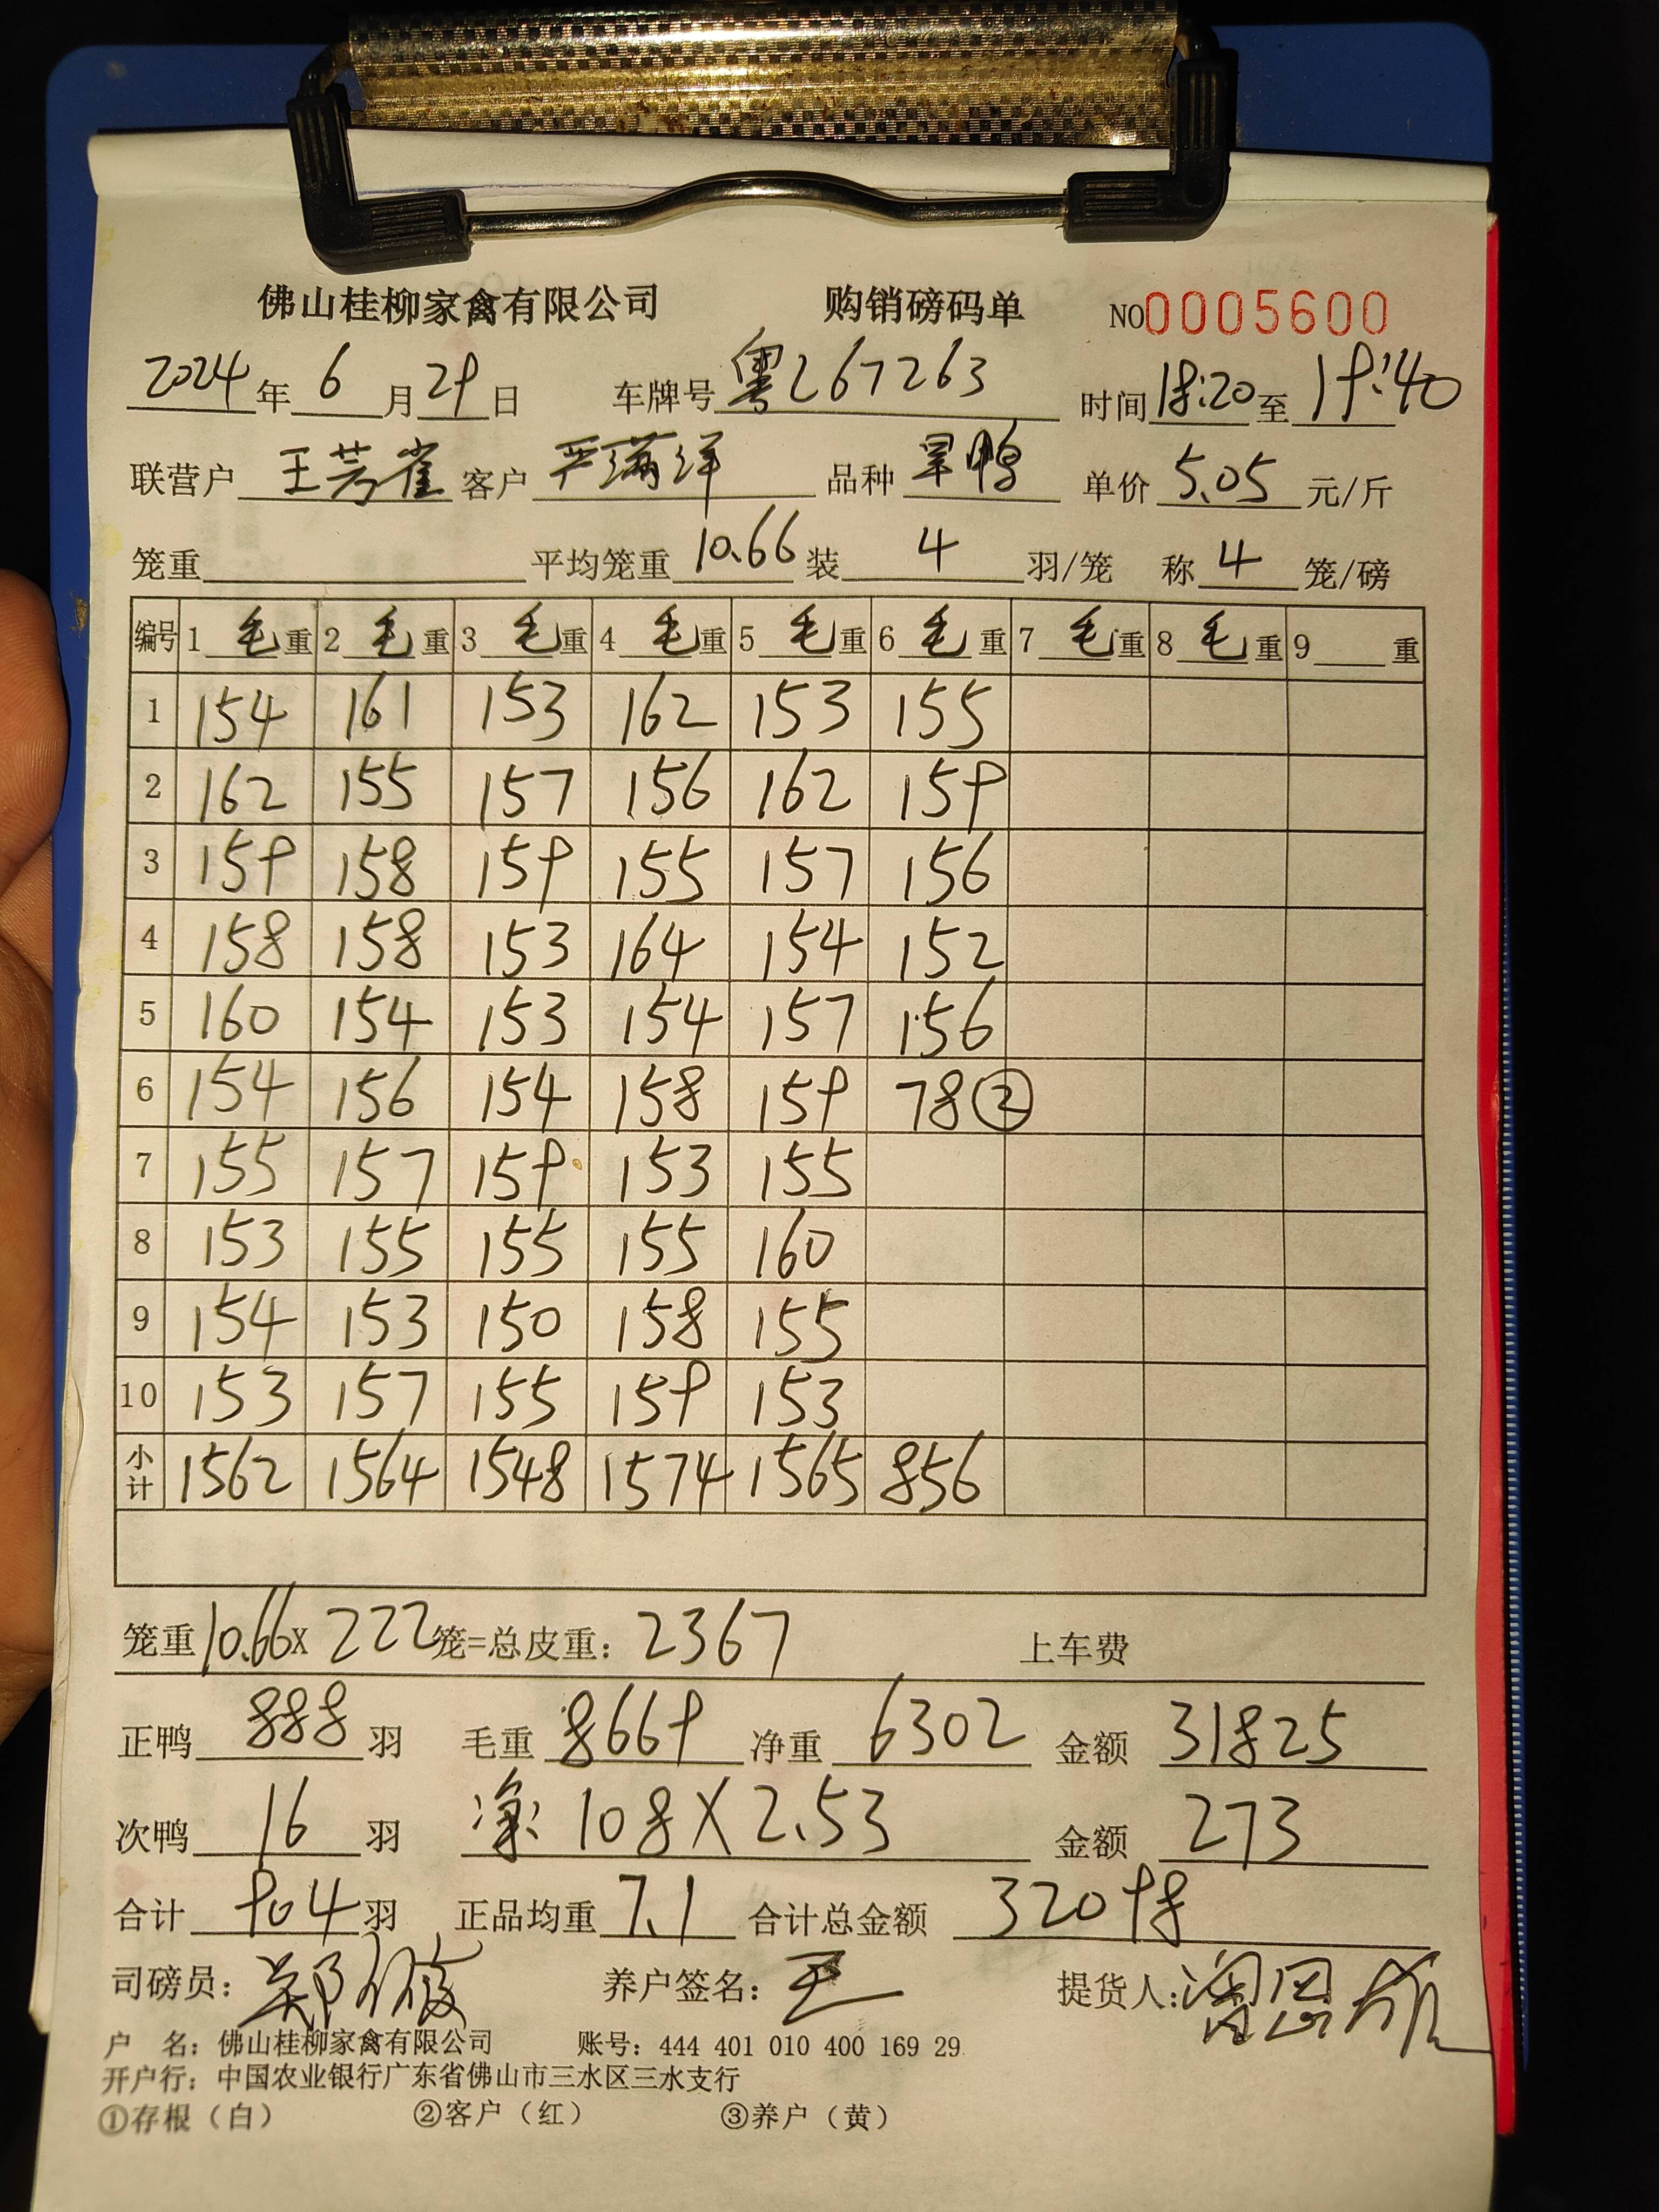 佛山桂柳家禽有限公司 购销磅码单 NO0005600
2024年6月29日 车牌号粤Z67263 时间18:20至19:40
联营户王芳雀 客户严满洋 品种旱鸭 单价5.05元/斤
笼重 平均笼重10.66装4羽/笼 称4笼/磅
编号 1毛重 2毛重 3毛重 4毛重 5毛重 6毛重 7毛重 8毛重 9重
1 154 161 153 162 153 155
2 162 155 157 156 162 159
3 159 158 159 155 157 156
4 158 158 153 164 154 152
5 160 154 153 154 157 156
6 154 156 154 158 159 78②
7 155 157 159 153 155
8 153 155 155 155 160
9 154 153 150 158 155
10 153 157 155 159 153
小计 1562 1564 1548 1574 1565 856
笼重10.66X222笼=总皮重:2367 上车费
正鸭888羽 毛重8669 净重6302 金额31825
次鸭16羽 净:108X2.53 金额273
合计904羽 正品均重7.1 合计总金额32098
司磅员:郑 养户签名:王 提货人:
户 名:佛山桂柳家禽有限公司 账号:444 401 010 400 169 29
开户行:中国农业银行广东省佛山市三水区三水支行
①存根(白) ②客户(红) ③养户(黄)